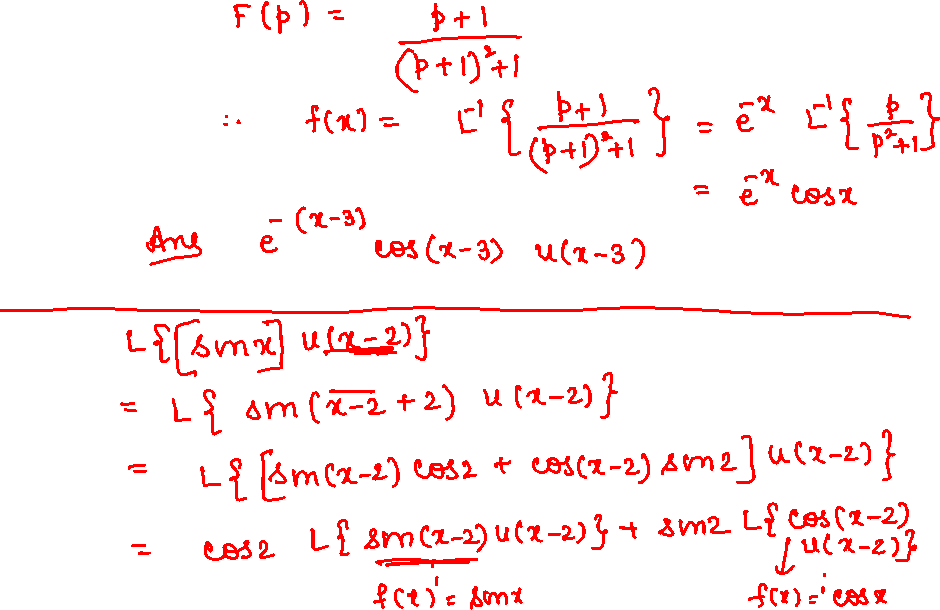 F(p) = (p+1)/((p+1)²+1)
∴ f(x) = L⁻¹{(p+1)/((p+1)²+1)} = e⁻ˣ L⁻¹{p/(p²+1)}
= e⁻ˣ cosx
Ans e^-(x-3) cos(x-3) u(x-3)
L{[sinx] u(x-2)}
= L{ sin(x-2 +2) u(x-2)}
= L{[sin(x-2) cos2 + cos(x-2) sin2] u(x-2)}
= cos2 L{ sin(x-2) u(x-2)} + sin2 L{ cos(x-2)
u(x-2)}
f(x) = sinx f(x) = cosx